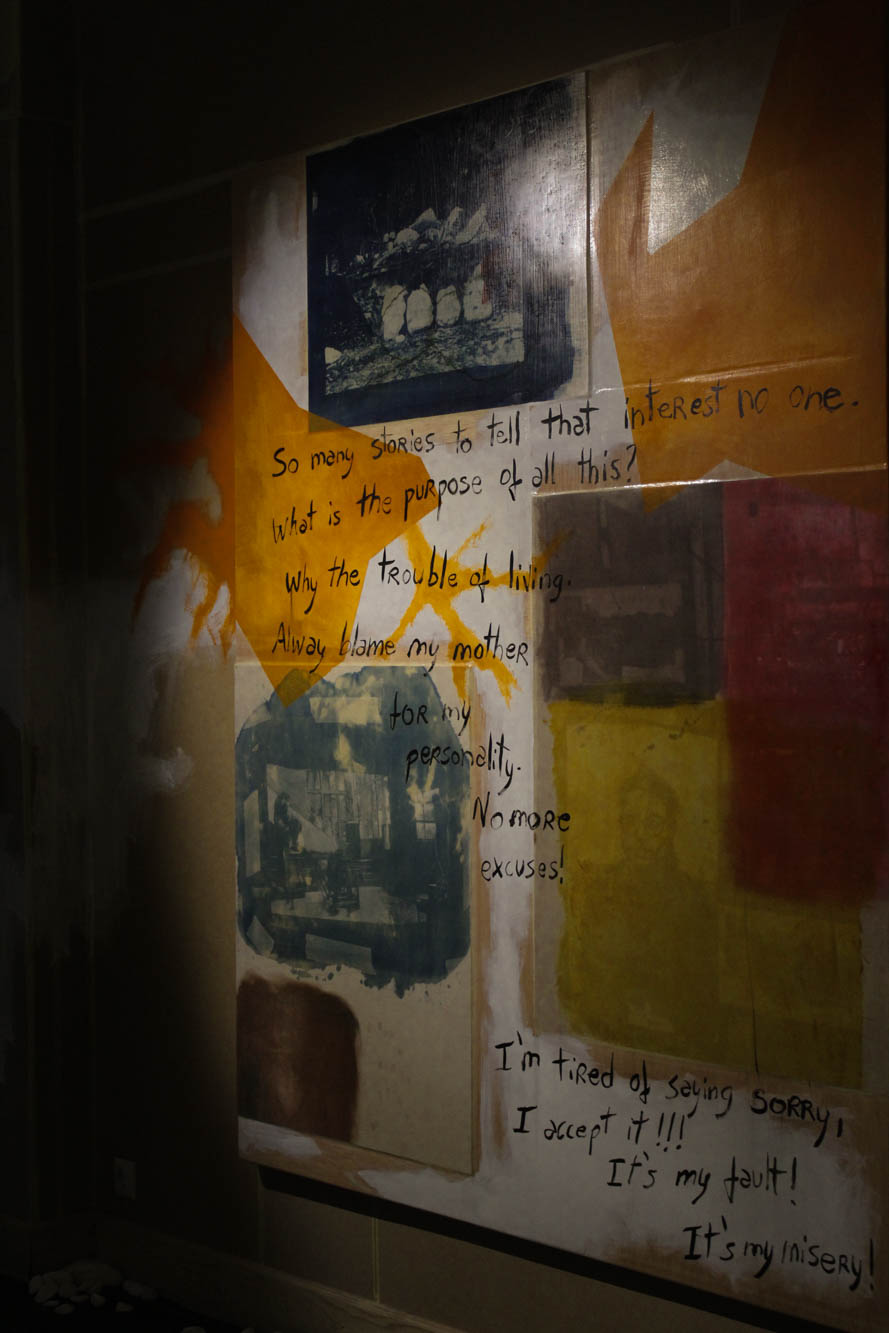 So many stories to tell that interest no one.
What is the purpose of all this?
Why the trouble of living.
Alway blame my mother
for my
personality.
No more
excuses!
I'm tired of saying sorry,
I accept it!!!
It's my fault!
It's my misery!